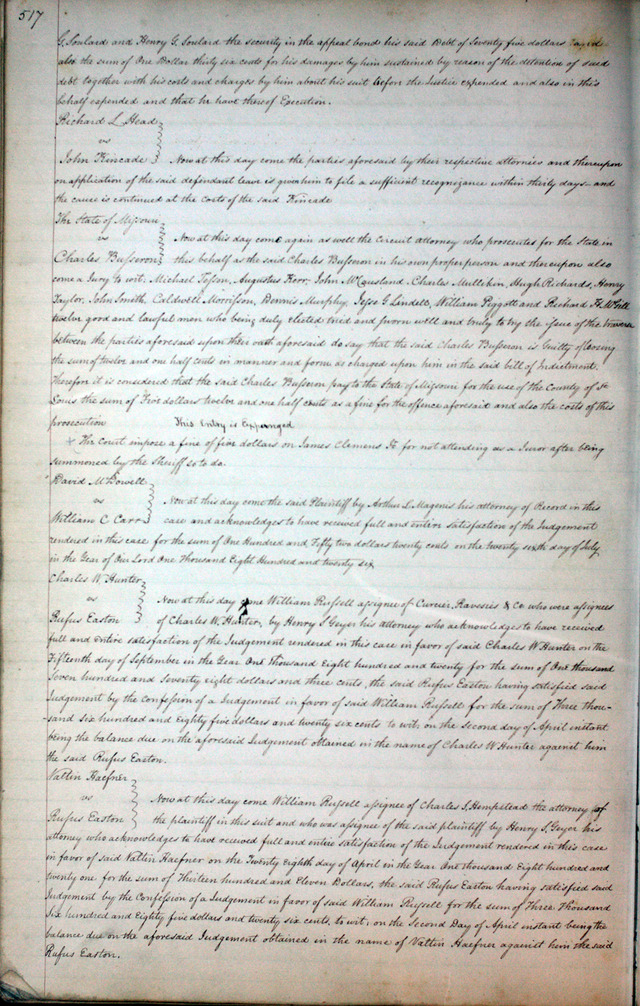 517
G. Soulard and Henry G. Soulard the security in the appeal bond his said Debt of Seventy five dollars and
also the sum of One Dollar thirty six cents for his damages by him sustained by reason of the detention of said
debt together with his costs and charges by him about his suit before the Justice expended and also in this
behalf expended and that he have thereof Execution.
Richard L. Head
vs
John Kincade Now at this day come the parties aforesaid by their respective attornies and thereupon
on application of the said defendant leave is given him to file a sufficient recognizance within thirty days and
the cause is continued at the costs of the said Kincade
The State of Missouri
vs Now at this day come again as well the Circuit Attorney who prosecutes for the State in
Charles Busseron this behalf as the said Charles Busseron in his own proper person and thereupon also
come a Jury to wit, Michael Tesson, Augustus Kerr, John McCausland, Charles Mullikin, Hugh Richards, Henry
Taylor, John Smith, Caldwell Morrison, Dennis Murphy, Jesse G Lindell, William Piggott and Richard H.
twelve good and lawful men who being duly elected tried and sworn well and truly to try the Issue of the traverse
between the parties aforesaid upon their oath aforesaid do say that the said Charles Busseron is Guilty of
the sum of twelve and one half cents in manner and form as charged upon him in the said bill of Indictment.
Therefore it is considered that the said Charles Busseron pay to the State of Missouri for the use of the County of St
Louis the sum of Five dollars twelve and one half cents as a fine for the offence aforesaid and also the costs of this
prosecution This Entry is Expunged
+ The Court impose a fine of five dollars on James Clemens Jr for not attending as a Juror after being
summoned by the Sheriff so to do.
David McDowell
vs Now at this day come the said Plaintiff by Arthur L Magenis his attorney of Record in this
William C Carr case and acknowledges to have received full and entire satisfaction of the Judgement
rendered in this case for the sum of One Hundred and Fifty two dollars twenty cents on the twenty sixth day of July
in the Year of Our Lord One Thousand Eight Hundred and twenty six
Charles W. Hunter
vs Now at this day come William Russell assignee of Currier, Ravesies & Co who were assignees
Rufus Easton of Charles W. Hunter, by Henry S Geyer his attorney who acknowledges to have received
full and Entire satisfaction of the Judgement rendered in this case in favor of said Charles W Hunter on the
Fifteenth day of September in the Year One Thousand Eight hundred and twenty for the sum of One thousand
Seven hundred and Seventy eight dollars and three cents, the said Rufus Easton having satisfied said
Judgement by the Confession of a Judgement in favor of said William Russell for the sum of Three Thou-
-sand Six hundred and Eighty five dollars and twenty six cents to wit, on the Second day of April instant
being the balance due on the aforesaid Judgement obtained in the name of Charles W Hunter against him
the said Rufus Easton.
Vattin Haefner
vs Now at this day come William Russell assignee of Charles S. Hempstead the attorney of
Rufus Easton the plaintiff in this suit and who was assignee of the said plaintiff by Henry S. Geyer his
attorney who acknowledges to have received full and entire satisfaction of the Judgement rendered in this case
in favor of said Vattin Haefner on the Twenty Eighth day of April in the Year One thousand Eight hundred and
twenty one for the sum of Thirteen hundred and Eleven Dollars, the said Rufus Easton having satisfied said
Judgement by the Confession of a Judgement in favor of said William Russell for the sum of Three Thousand
Six hundred and Eighty five dollars and twenty six cents, to wit, on the Second Day of April instant being the
balance due on the aforesaid Judgement obtained in the name of Vattin Haefner against him the said
Rufus Easton.